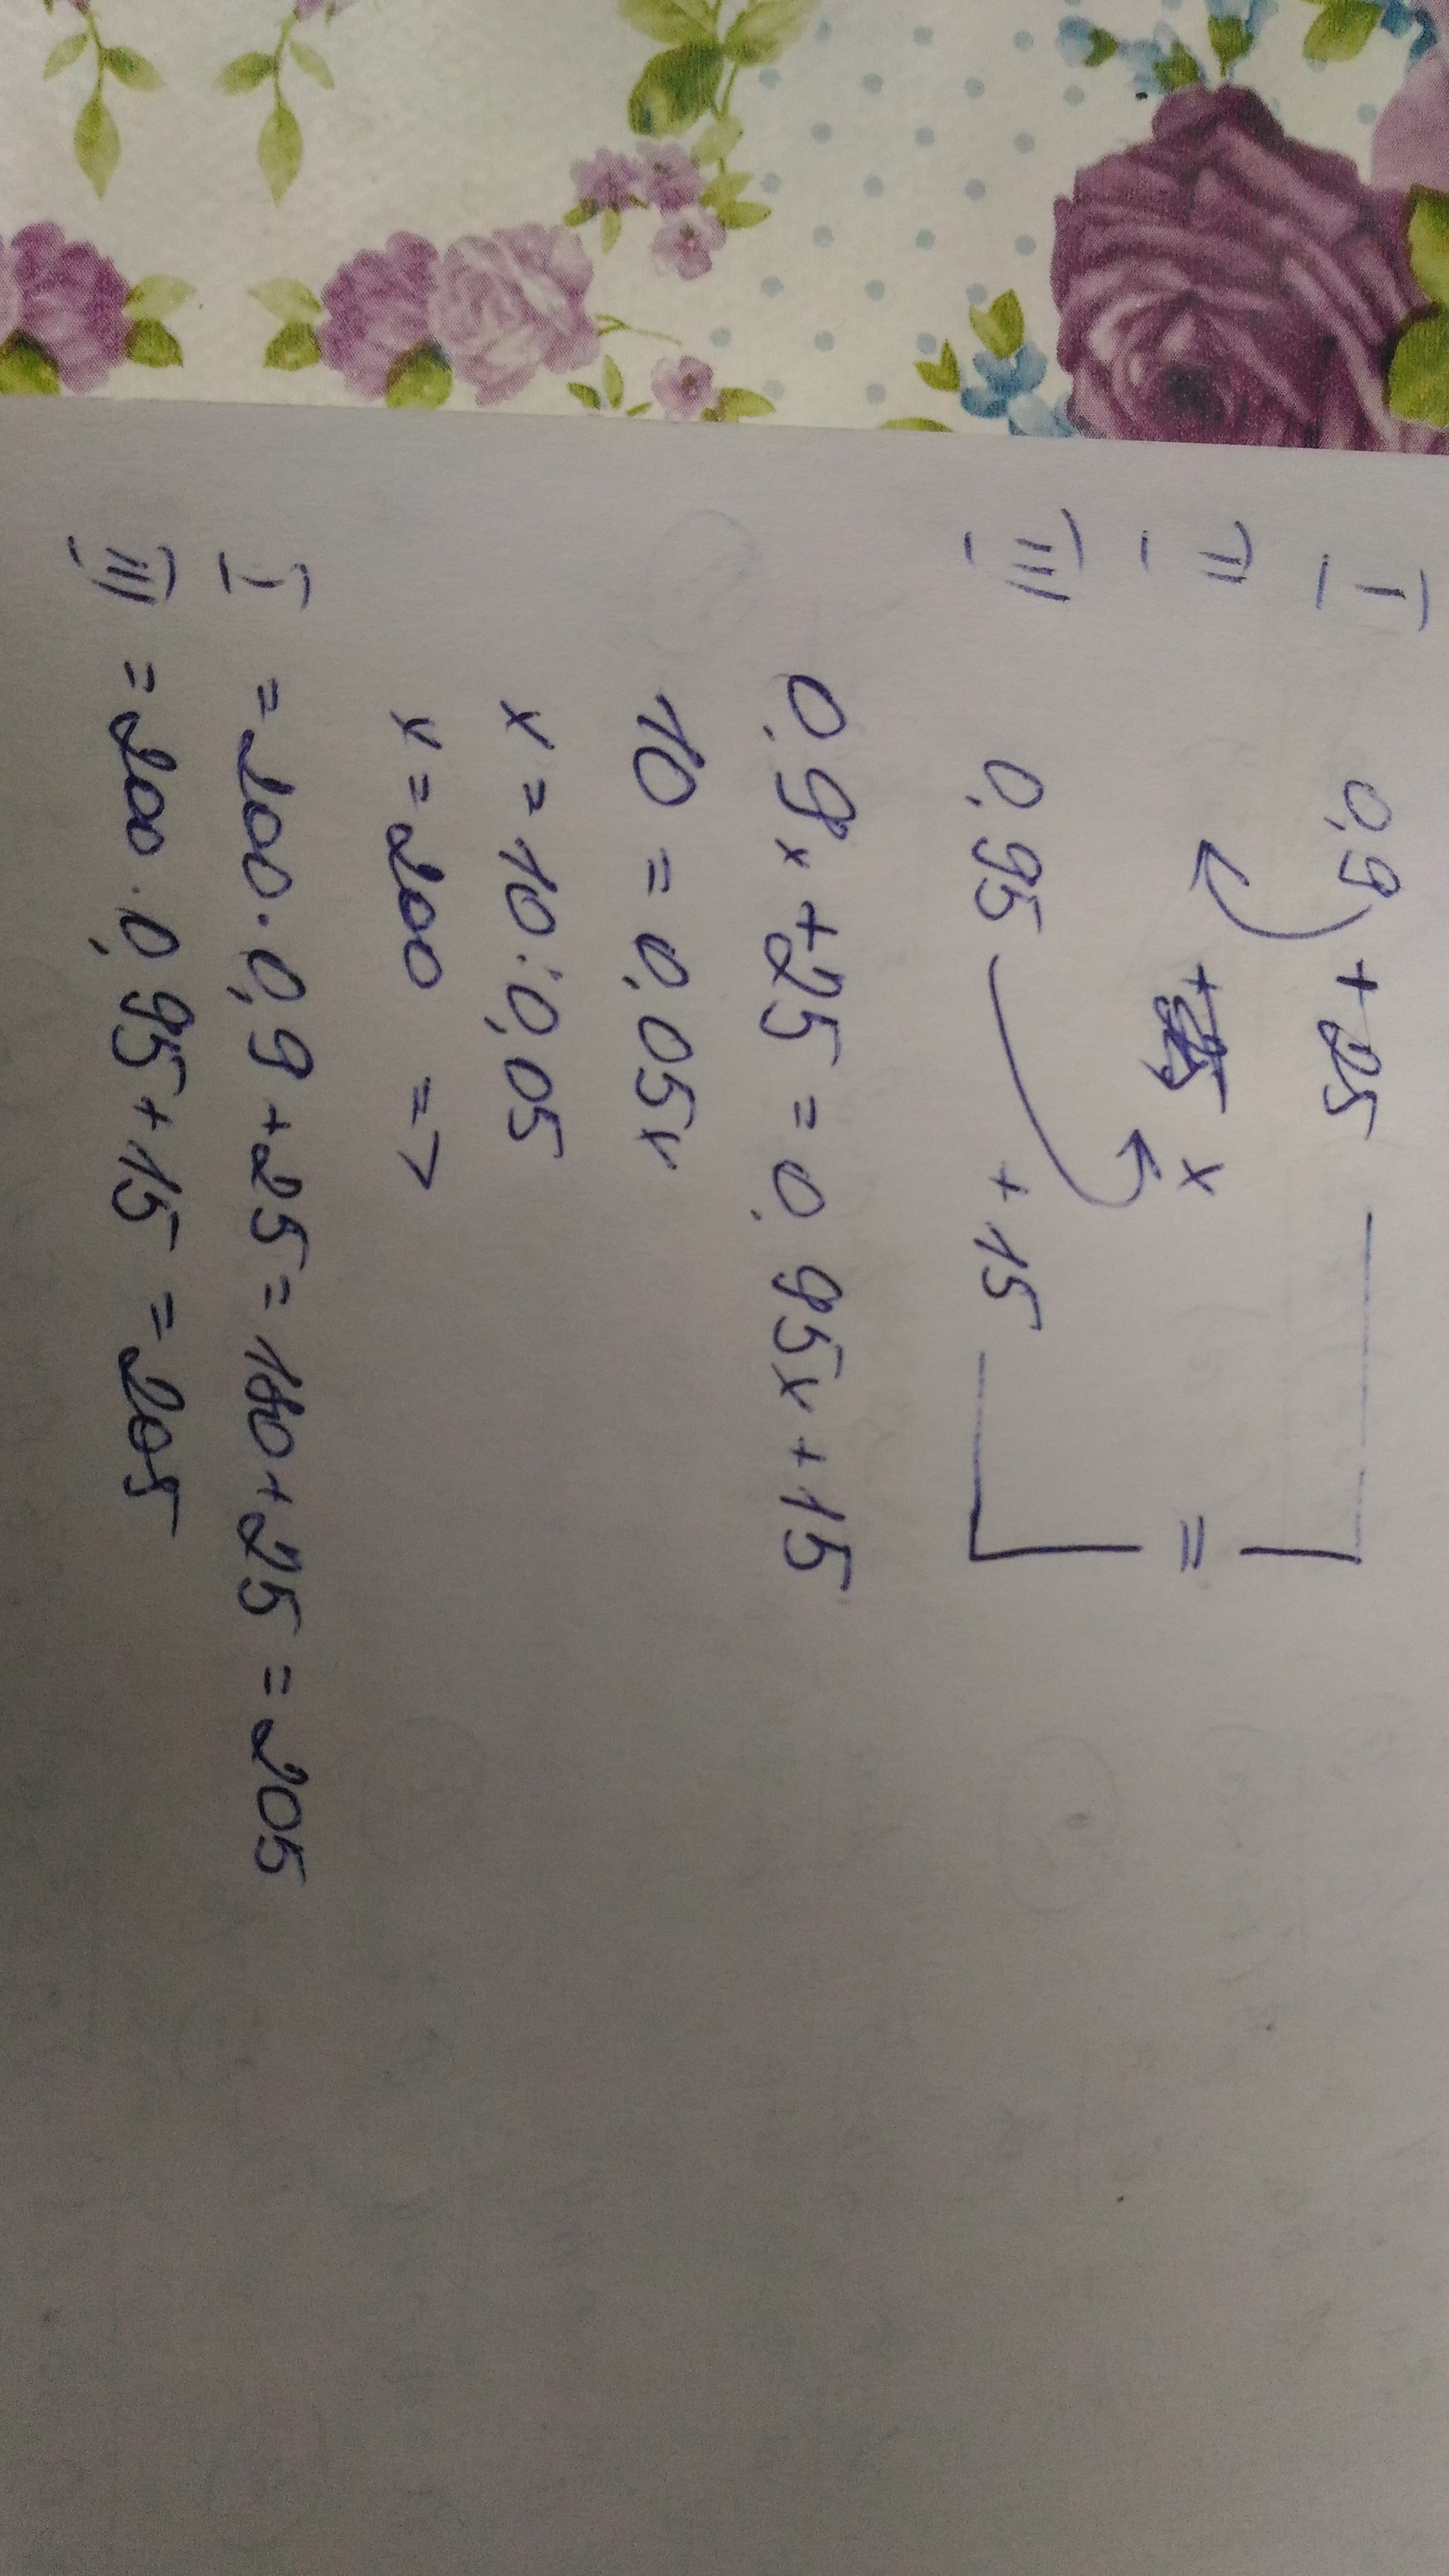 I 0,9 + 25
II x
III 0,95 + 15
=
0,9x + 25 = 0,95x + 15
10 = 0,05x
x = 10 : 0,05
x = 200 =>
I = 200 · 0,9 + 25 = 180 + 25 = 205
III = 200 · 0,95 + 15 = 205